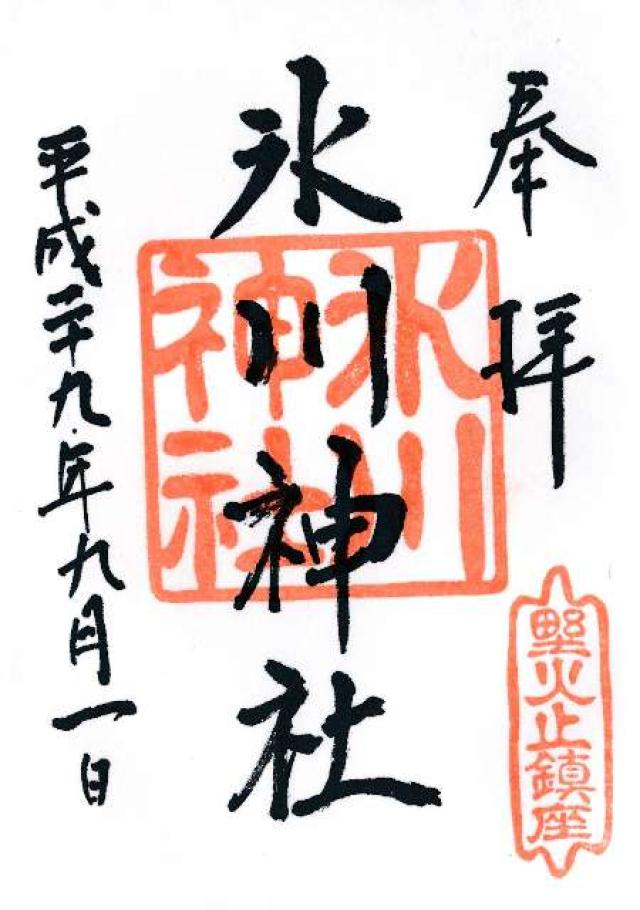 奉拝
野火止鎮座
氷川神社
氷川
神社
平成二十九年九月一日